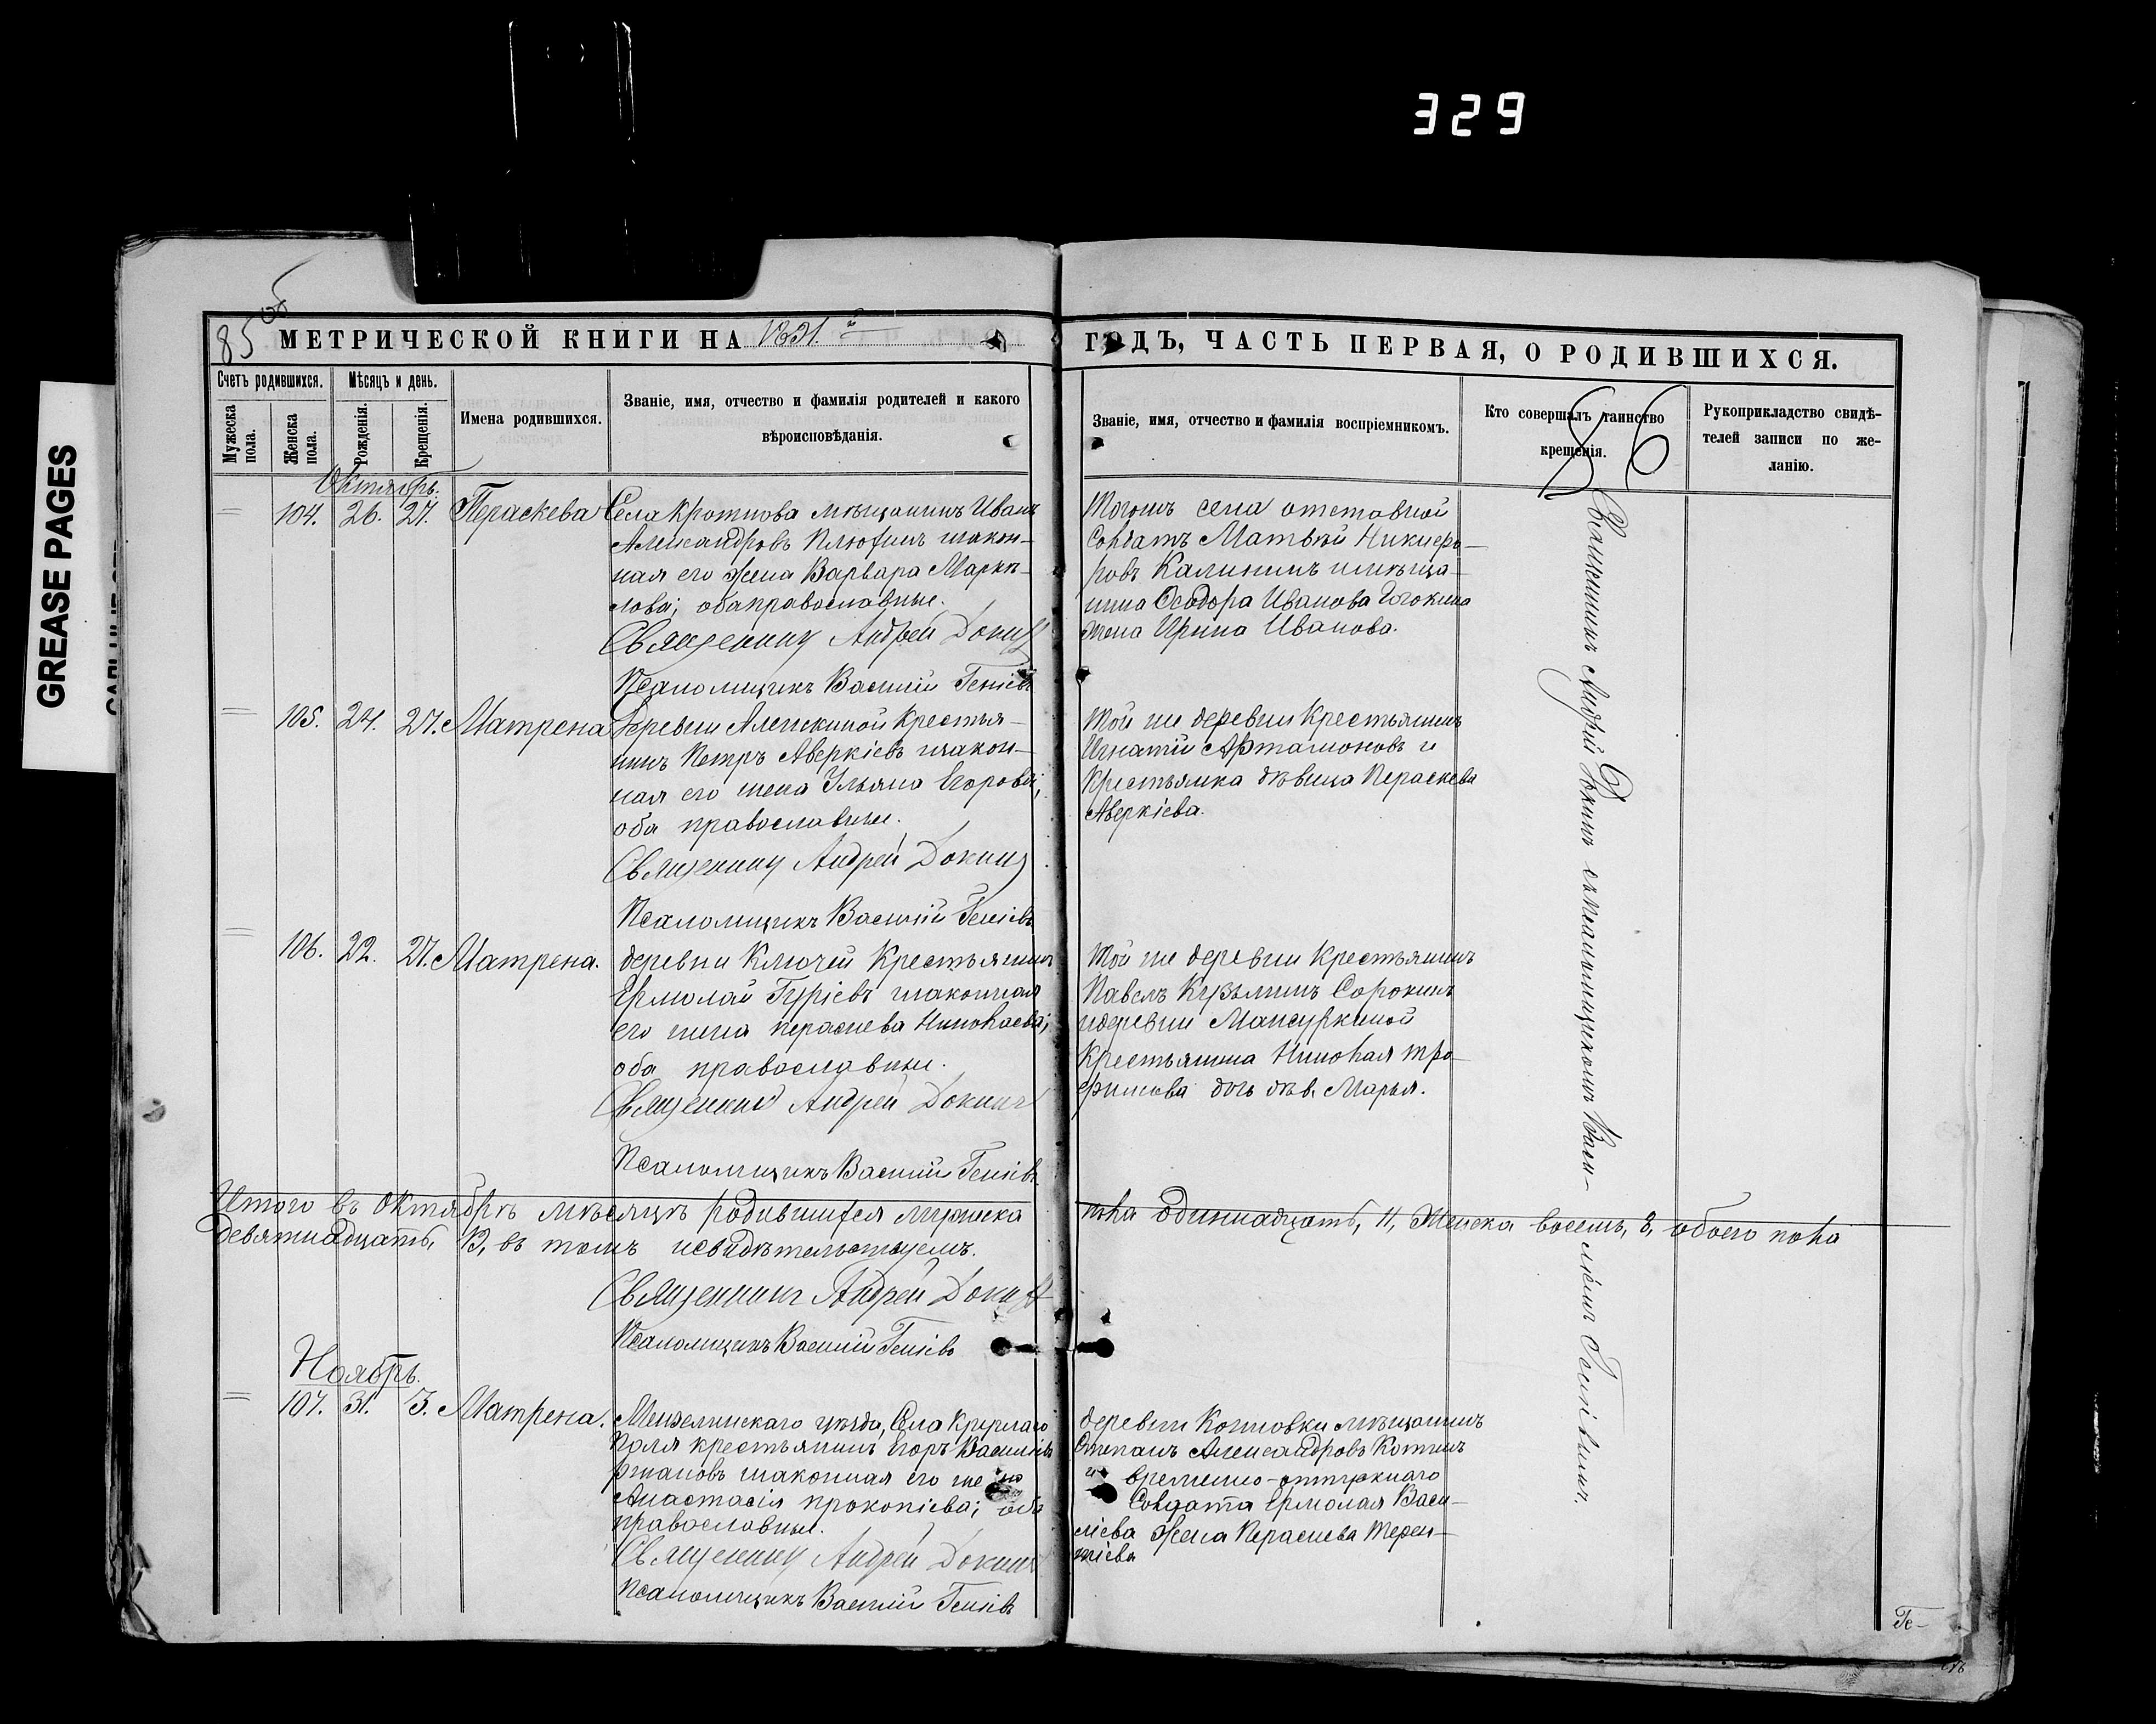 329
GREASE PAGES
85 об
МЕТРИЧЕСКОЙ КНИГИ НА 1891 й
ГОДЪ, ЧАСТЬ ПЕРВАЯ, О РОДИВШИХСЯ.
86
Счетъ родившихся.
Мужеска пола.
Женска пола.
Мѣсяцъ и день.
Рожденія.
Крещенія.
Имена родившихся.
Званіе, имя, отчество и фамилія родителей и какого
вѣроисповѣданія.
Званіе, имя, отчество и фамилія воспріемникомъ.
Кто совершалъ таинство
крещенія.
Рукоприкладство свидѣ-
телей записи по же-
ланію.
Октябрь.
104. 26. 27. Параскева
Села мѣщанинъ Иванъ
Александровъ изакон-
ная его жена Варвара
оба православные.
Священникъ Андрей Докинъ
Псаломщикъ Василій
Тогожъ села отставной
Солдатъ Матвѣй Никифо-
ровъ Калининъ имѣща-
нина Ѳеодора Иванова
жена Ирина Иванова.
105. 24. 27. Матрена
Деревни Алешкиной Крестья-
нинъ Петръ Аверкіевъ изакон-
ная его жена Ульяна Егорова;
оба православные.
Священникъ Андрей Докинъ
Псаломщикъ Василій
Той же деревни Крестьянинъ
Игнатій Артамоновъ и
Крестьянка дѣвица Параскева
Аверкіева.
106. 22. 27. Матрена.
деревни Ключей Крестьянинъ
Ермолай Гурьевъ изаконная
его жена Параскева Николаева;
оба православные.
Священникъ Андрей Докинъ
Псаломщикъ Василій
Той же деревни Крестьянинъ
Павелъ Кузьминъ Сорокинъ
идеревни Мансуркиной
Крестьянина Николая Тро-
фимова дочь дѣв. Марья.
Итого въ Октябрѣ мѣсяцѣ родившихся мужеска
пола одиннадцать, 11, Женска восемь, 8, обоего пола
девятнадцать, 19, въ томъ исвидѣтельствуемъ.
Священникъ Андрей Докинъ
Псаломщикъ Василій
Ноябрь.
107. 31. 3. Матрена.
Мензелинскаго уѣзда, Села Круглаго
Поля крестьянинъ Егоръ Васильевъ
изаконная его жена
Анастасія Прокопіева; оба
православные.
Священникъ Андрей Докинъ
Псаломщикъ Василій
деревни мѣщанинъ
Степанъ Александровъ
и временно-отпускнаго
Солдата Ермолая Васи-
лієва жена Параскева Терен-
тіева
Священникъ Андрей Докинъ съ псаломщикомъ Васи-
ліемъ